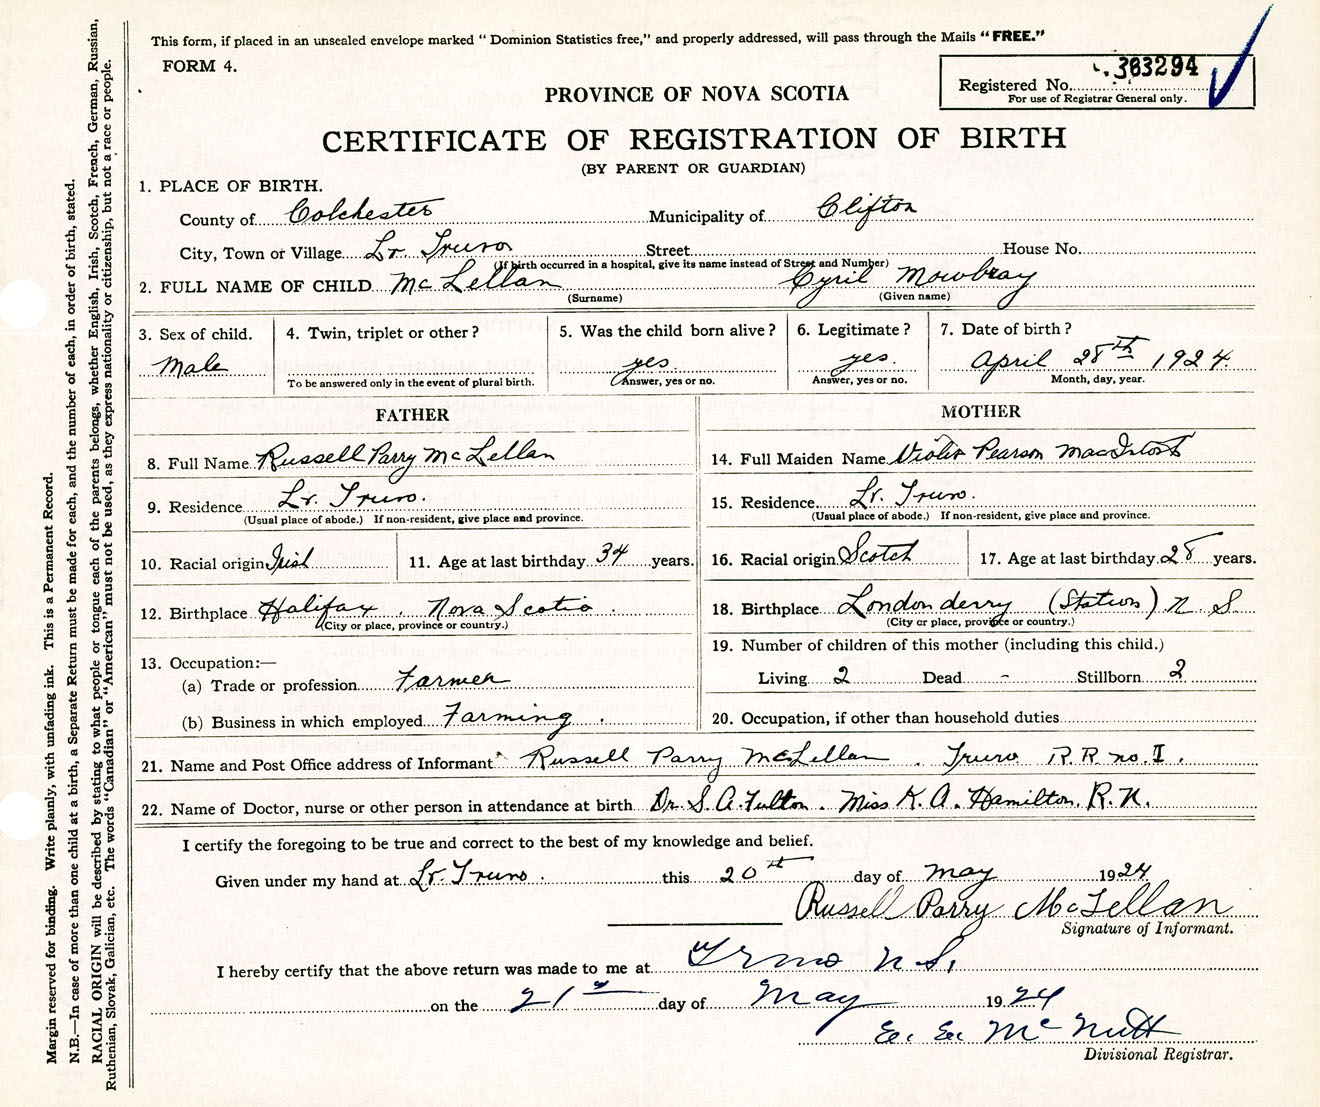 This form, if placed in an unsealed envelope marked “ Dominion Statistics free,” and properly addressed, will pass through the Mails “ FREE.”
FORM 4.
Registered No. 363294
For use of Registrar General only.
PROVINCE OF NOVA SCOTIA
CERTIFICATE OF REGISTRATION OF BIRTH
(BY PARENT OR GUARDIAN)
1. PLACE OF BIRTH.
County of Colchester Municipality of Clifton
City, Town or Village Lr. Truro Street House No.
(If birth occurred in a hospital, give its name instead of Street and Number)
2. FULL NAME OF CHILD McLellan Cyril Mowbray
(Surname) (Given name)
3. Sex of child. 4. Twin, triplet or other? 5. Was the child born alive? 6. Legitimate? 7. Date of birth?
Male yes. yes. April 28th 1924.
To be answered only in the event of plural birth. Answer, yes or no. Answer, yes or no. Month, day, year.
FATHER MOTHER
8. Full Name Russell Parry McLellan 14. Full Maiden Name Violet Pearson MacIntosh
9. Residence Lr. Truro. 15. Residence Lr. Truro.
(Usual place of abode.) If non-resident, give place and province. (Usual place of abode.) If non-resident, give place and province.
10. Racial origin Irish 11. Age at last birthday 34 years. 16. Racial origin Scotch 17. Age at last birthday 28 years.
12. Birthplace Halifax. Nova Scotia. 18. Birthplace Londonderry (Station) N. S.
(City or place, province or country.) (City or place, province or country.)
13. Occupation:— 19. Number of children of this mother (including this child.)
(a) Trade or profession Farmer Living 2 Dead - Stillborn 2
(b) Business in which employed Farming. 20. Occupation, if other than household duties
21. Name and Post Office address of Informant Russell Parry McLellan. Truro R.R. no. I.
22. Name of Doctor, nurse or other person in attendance at birth Dr. S. A. Fulton. Miss K. A. Hamilton, R. N.
I certify the foregoing to be true and correct to the best of my knowledge and belief.
Given under my hand at Lr. Truro. this 20th day of May 1924
Russell Parry McLellan
Signature of Informant.
I hereby certify that the above return was made to me at Truro N S,
on the 21st day of May 1924
E. E. McNutt
Divisional Registrar.
Margin reserved for binding. Write plainly, with unfading ink. This is a Permanent Record.
N.B.—In case of more than one child at a birth, a Separate Return must be made for each, and the number of each, in order of birth, stated.
RACIAL ORIGIN will be described by stating to what people or tongue each of the parents belongs, whether English, Irish, Scotch, French, German, Russian,
Ruthenian, Slovak, Galician, etc. The words “Canadian” or “American” must not be used, as they express nationality or citizenship, but not a race or people.